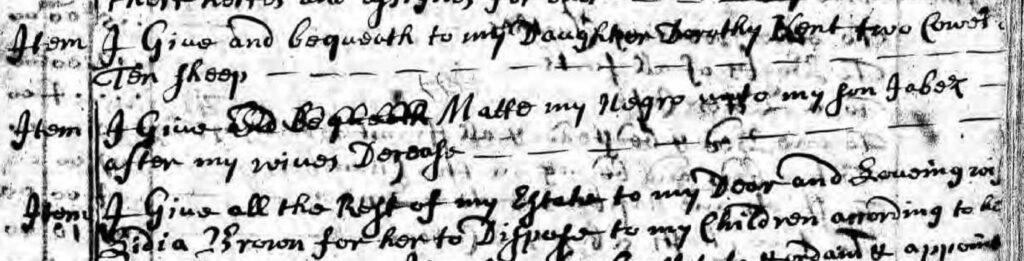 theire heires and assignes for ever
Item I Give and bequeath to my Daughter Dorothy Kent two Cowes
Ten sheep
Item I Give and Bequeath Matte my Negro unto my son Jabez
after my wives Decease
Item I Give all the Rest of my Estate to my Dear and Loveing wif
Lidia Brown for her to Dispose to my Children according to he
& appoint